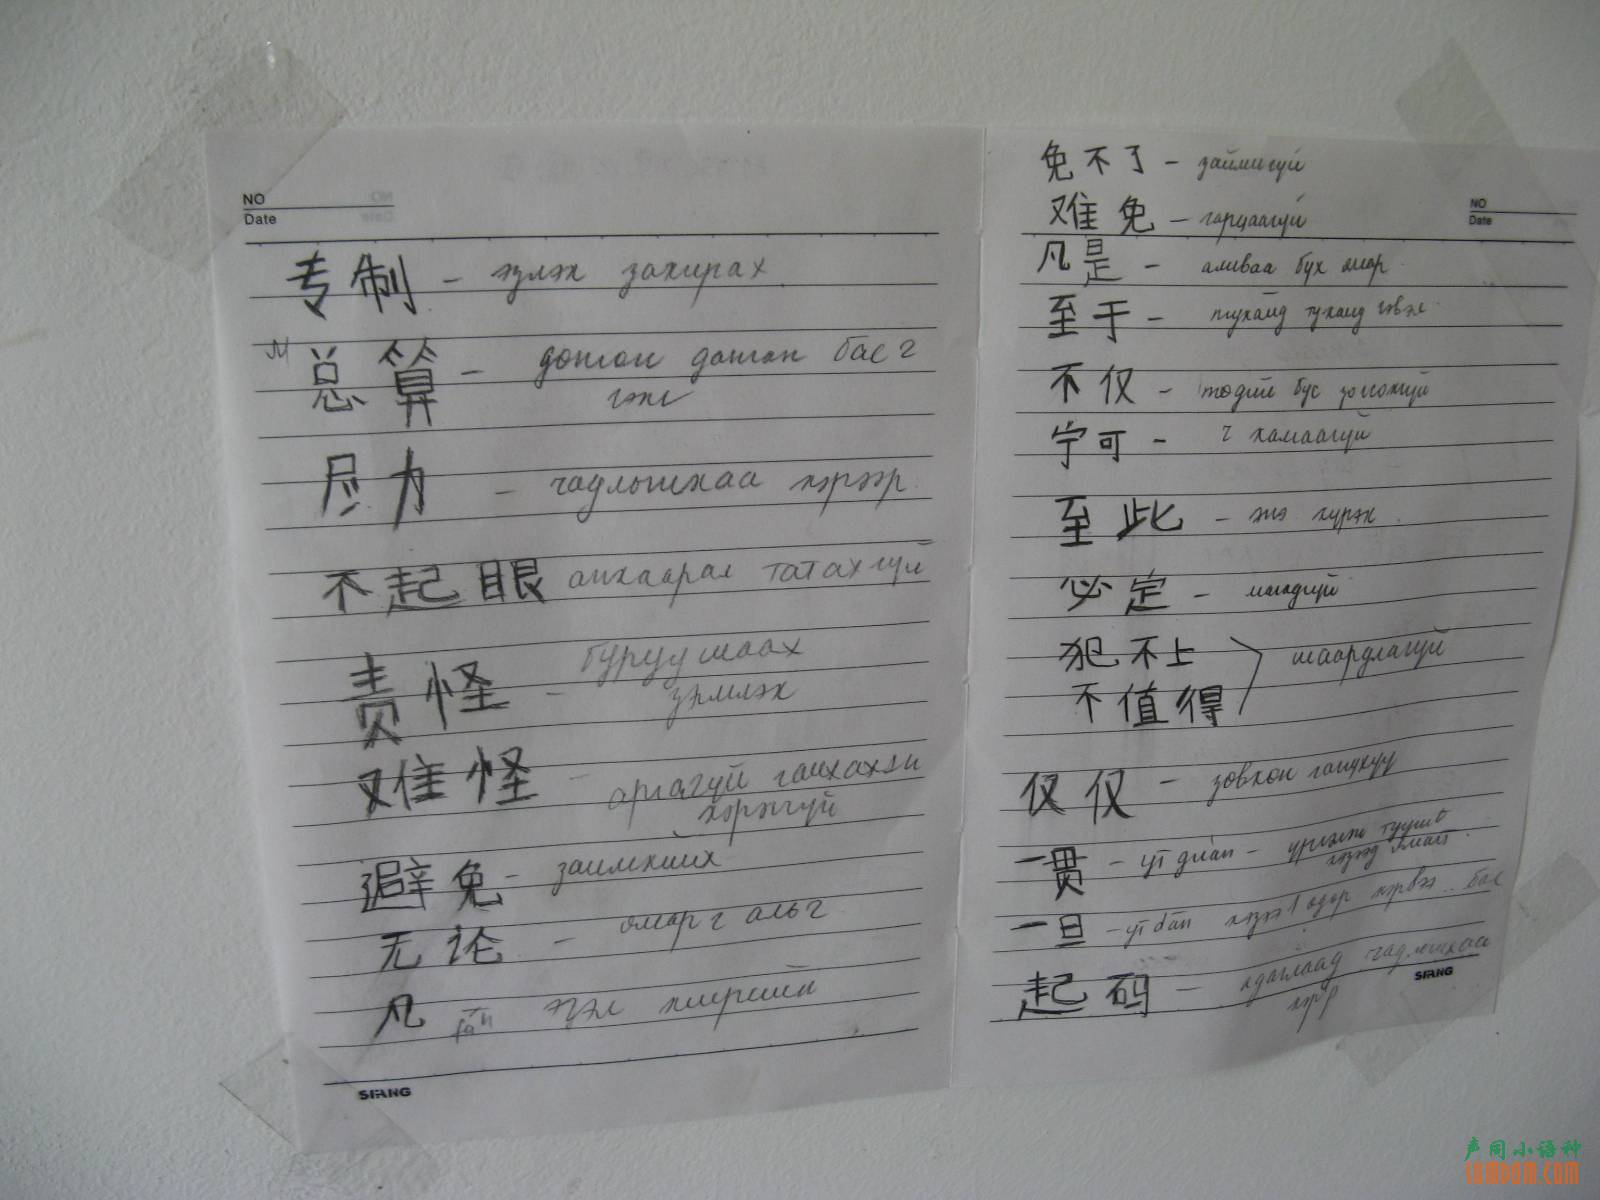 NO
Date
专制 - эзлэх захирах
总算 -
гэж
尽力 - чадлынхаа хэрээр
不起眼 анхаарал татахгүй
буруушаах
责怪 - зэмлэх
难怪 - аргагүй гайхах
хэрэггүй
避免 - зайлхийх
无论 - ямар ч аль ч
凡 fán эгэл жирийн
SIFANG
免不了 - зайлшгүй
NO
Date
难免 - гарцаагүй
凡是 - аливаа бүх ямар
至于 - тухайд тухайд гэвэл
不仅 - төдий бус зогсохгүй
宁可 - ч хамаагүй
至此 - энэ хүрэх
必定 - магадгүй
犯不上
不值得 шаардлагагүй
仅仅 - зөвхөн ганцхүү
一贯 - yī guàn - үргэлж тууштай
хэзээд ямагт
一旦 - yī dàn хэзээ 1 өдөр хэрвээ.. бас
起码 - ядаглаад чадлынхаа
хэр
SIFANG
声同小语种
somdom.com